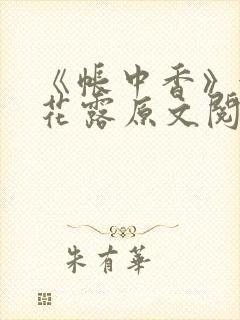 《帐中香》
花露原文阅
朱有華